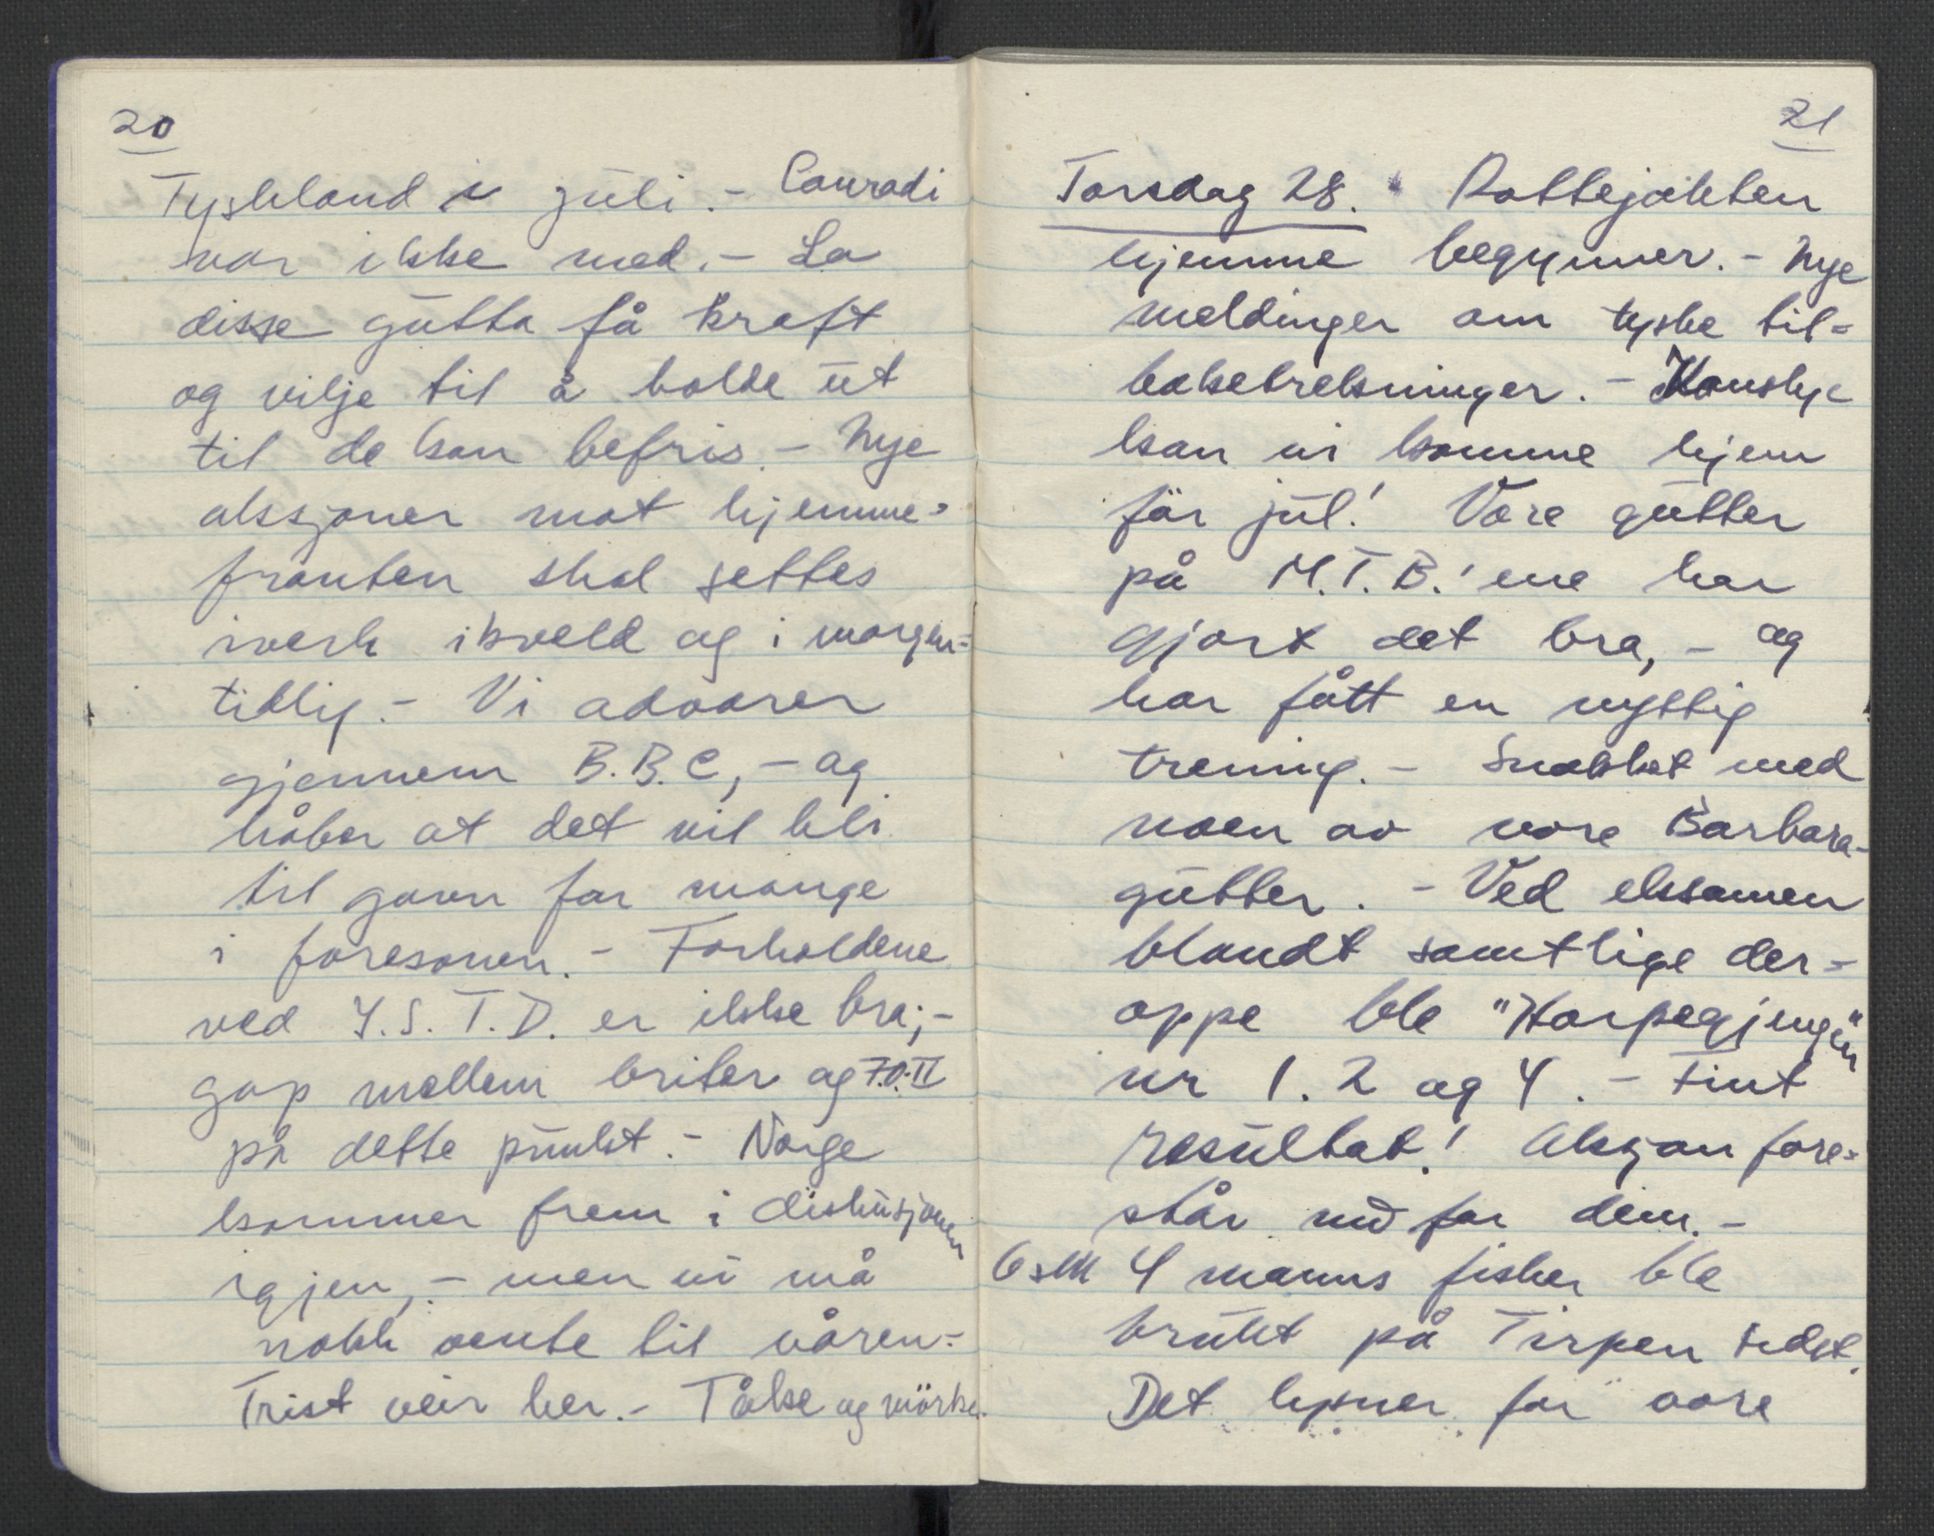 20
Tyskland i juli. - Conradi
var ikke med. - La
disse gutta få kraft
og vilje til å holde ut
til de kan befris. - Nye
aksjoner mot hjemme=
fronten skal settes
iverk ikveld og i morgen=
tidlig. - Vi advarer
gjennem B.B.C, - og
håber at det vil bli
til gavn for mange
i faresonen. - Forholdene
ved I.S.T.D. er ikke bra; -
gap mellem briter og F.O.II
på dette punkt. - Norge
kommer frem i diskusjonen
igjen, - men vi må
nokk vente til våren. -
Trist veir her. - Tåke og mörke.
21
Torsdag 28. Rottejakten
hjemme begynner. - Nye
meldinger om tyske til=
baketrekninger. - Kanskje
kan vi komme hjem
för jul! Våre gutter
på M.T.B.'ene har
gjort det bra, - og
har fått en nyttig
trening. - Snakket med
noen av vore Barbara-
gutter. - Ved eksamen
blandt samtlige der=
oppe ble "Harpegjengen"
nr 1. 2 og 4. - Fint
resultat! Aksjon fore=
står nu for dem. -
4 manns fisker ble
brukt på Tirpen sidst.
Det lysner for vore